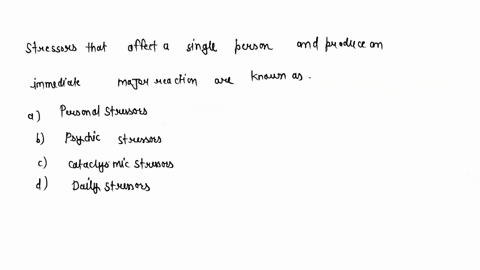 Stressors that affect a single person and produce an
immediate major reaction are known as.
a) Personal stressors
b) Psychic stressors
c) Cataclysmic stressors
d) Daily stressors